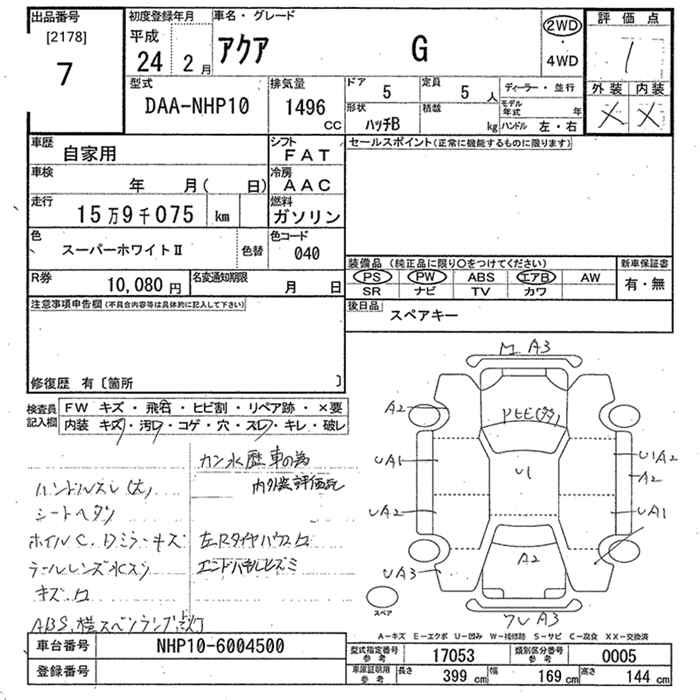 出品番号
[2178]
7
初度登録年月
平成
24 2月
車名・グレード
アクア G
2WD
・
4WD
評価点
1
外装 内装
× ×
型式
DAA-NHP10
排気量
1496
CC
ドア 5
定員 5人
形状 ハッチB
積載 kg
ディーラー・並行
モデル年式 年
ハンドル 左・右
車歴 自家用
シフト FAT
車検 年 月( 日)
冷房 AAC
走行 15万9千075 km
燃料 ガソリン
色 スーパーホワイトⅡ
色替
色コード 040
R券 10,080円
名変通知期限 月 日
セールスポイント(正常に機能するものに限ります)
装備品(純正品に限り○をつけてください)
PS PW ABS エアB AW
SR ナビ TV カワ
新車保証書
有・無
後日品
スペアキー
注意事項申告欄(不具合内容等は具体的に記入して下さい)
修復歴 有〔箇所 〕
検査員記入欄
FW キズ・飛石・ヒビ割・リペア跡・×要
内装 キズ・汚レ・コゲ・穴・スレ・キレ・破レ
カン水歴車の為
内外装評価
ハンドルスレ(大)
シートヘタリ
ホイルC.Dミラーキズ
左Rタイヤハウス
テールレンズ水
エンドパネルヒズミ
キズ
ABS,横スベリランプ点灯
M A3
A2
UA1
U1
U1A2
A2
UA2
UA1
A2
UA3
スペア
A3
A-キズ E-エクボ U-凹み W-補修跡 S-サビ C-腐食 XX-交換済
車台番号 NHP10-6004500
登録番号
型式指定番号参考 17053
類別区分番号参考 0005
車庫証明用参考 長さ 399cm 幅 169cm 高さ 144cm